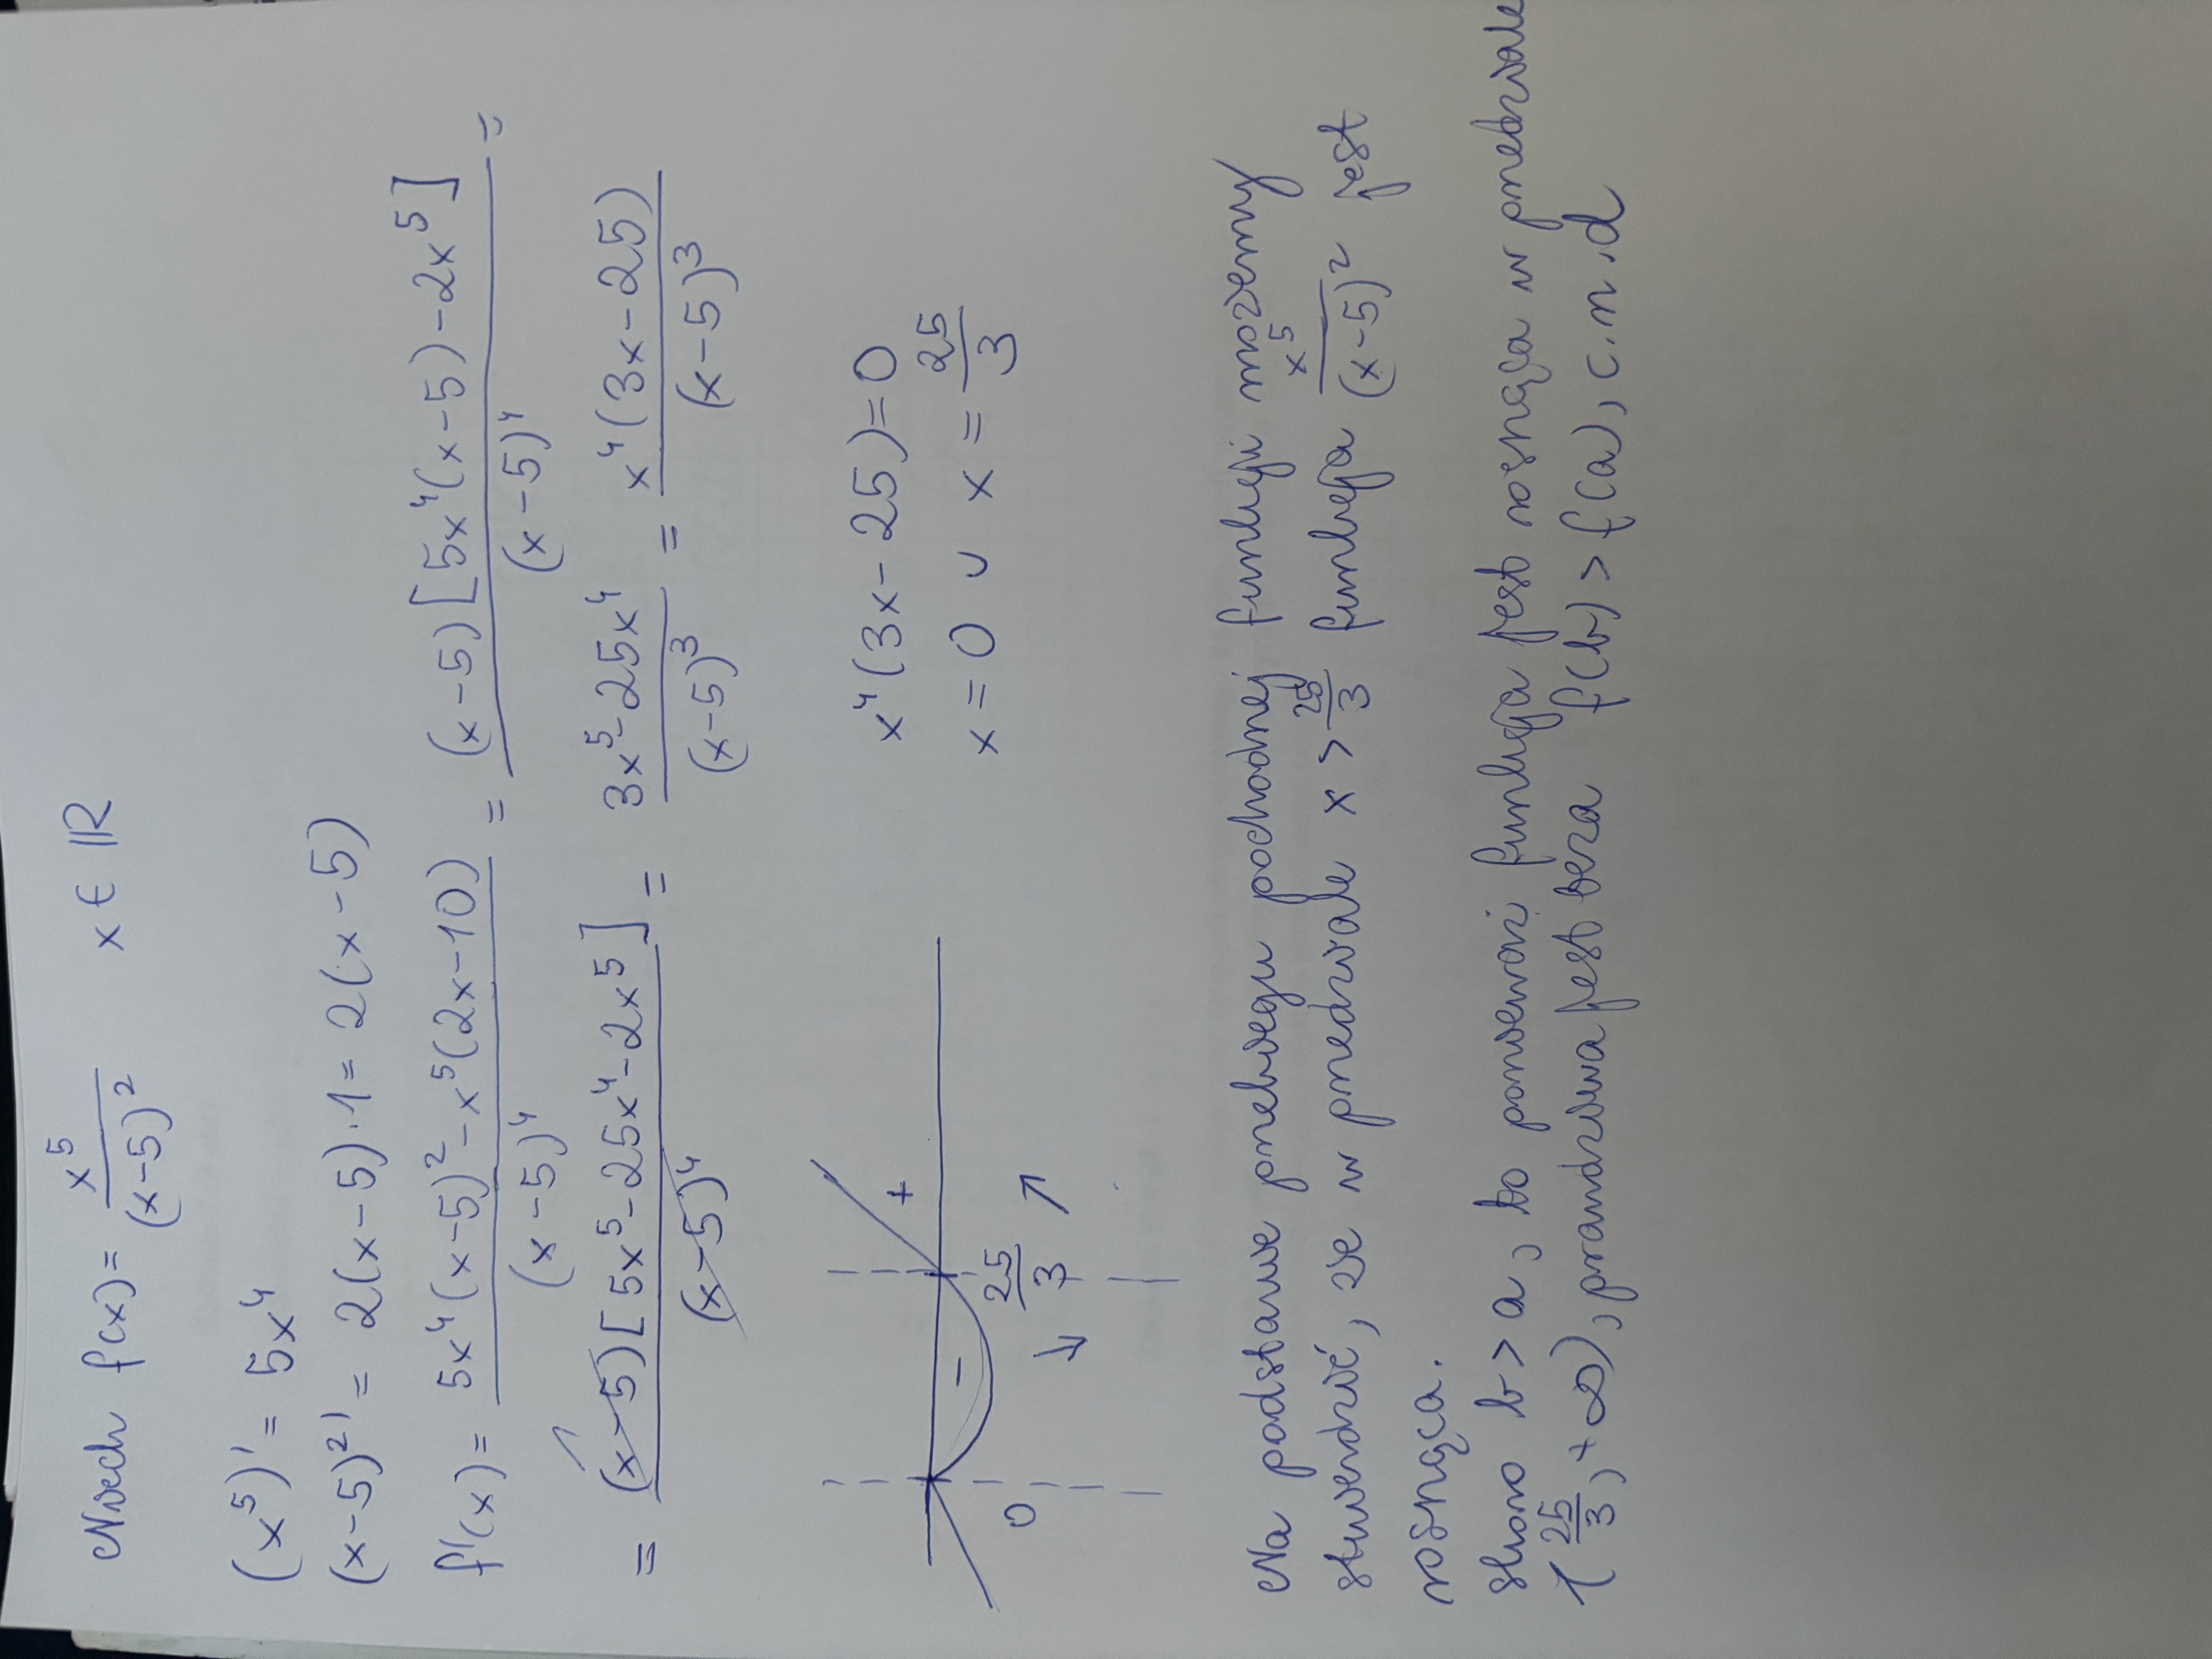 Niech f(x) = x⁵/(x-5)² x ∈ ℝ
(x⁵)' = 5x⁴
(x-5)²' = 2(x-5)·1 = 2(x-5)
f'(x) = 5x⁴(x-5)² - x⁵(2x-10)/(x-5)⁴ = (x-5)[5x⁴(x-5) - 2x⁵]/(x-5)⁴ =
= (x-5)[5x⁵ - 25x⁴ - 2x⁵]/(x-5)⁴ = 3x⁵ - 25x⁴/(x-5)³ = x⁴(3x-25)/(x-5)³
x⁴(3x-25) = 0
x = 0 ∪ x = 25/3
- +
0 ↘ 25/3 ↗
Na podstawie przebiegu pochodnej funkcji możemy
stwierdzić, że w przedziale x > 25/3 funkcja x⁵/(x-5)² jest
rosnąca.
Skoro b > a, to ponieważ funkcja jest rosnąca w przedziale
(25/3, +∞), prawdziwa jest teza f(b) > f(a), c.n.d